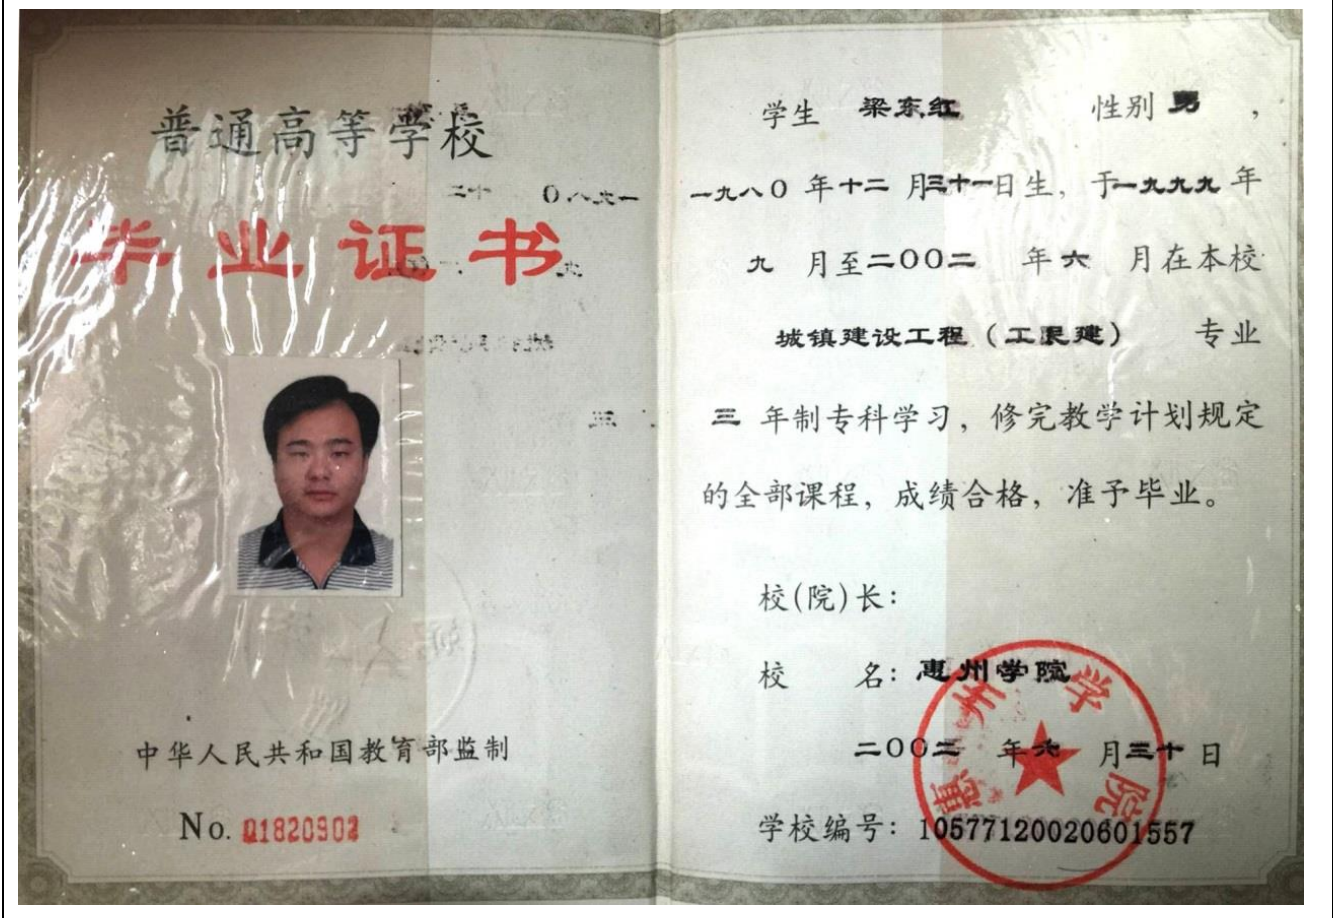 普通高等学校
毕业证书
中华人民共和国教育部监制
No. Q1820902
学生 梁东红 性别 男，
一九八0 年十二 月三十一日生，于一九九九 年
九 月至二00二 年六 月在本校
城镇建设工程（工民建） 专业
三 年制专科学习，修完教学计划规定
的全部课程，成绩合格，准予毕业。
校(院)长：
校 名：惠州学院
二00二 年六 月三十日
学校编号：10577120020601557
惠州学院